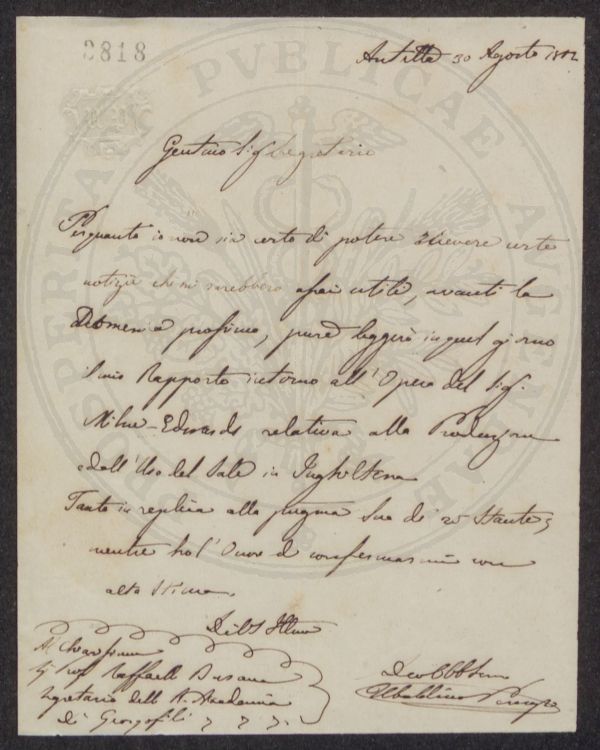 3818
30 Agosto
Gentmo Sig Segretario
Perquanto io non sia certo di potere ricevere certe
notizie che mi sarebbero assai utili, avanti la
Domenica prossima, pure leggerò in quel giorno
il mio Rapporto intorno all'Opera del Sig.
Milne-Edwards relativa alla Produzione
e dell'Uso del Sale in Inghilterra
Tanto in replica alla pregma Sua de' 25 stante,
mentre ho l'Onore di confermarmi con
alta stima.
Al Chiarissimo
Sig Raffaello
Segretario dell' R. Accademia
di Georgofili
Ubaldino Peruzzi
PROSPERITATI PVBLICAE AVGENDAE